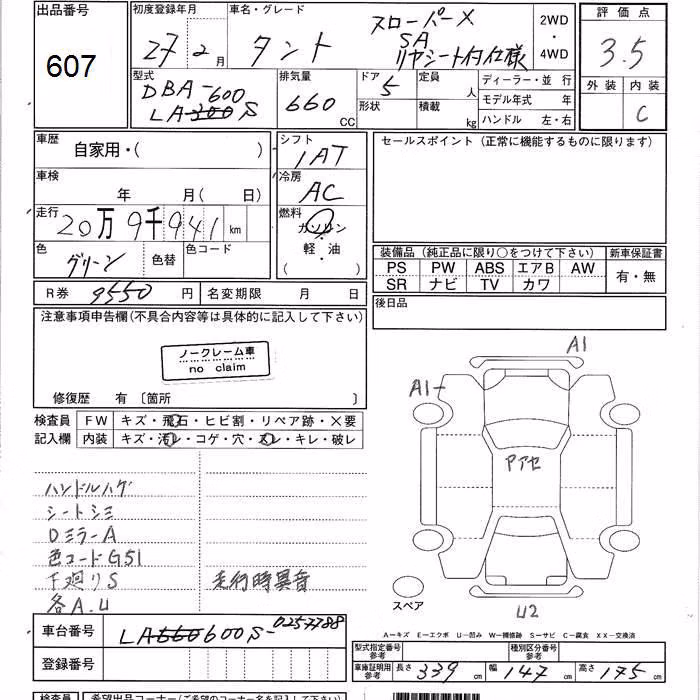 出品番号
607
初度登録年月
27年2月
車名・グレード
タント
スローパーX
SA
リヤシート付仕様
2WD
・
4WD
評価点
3.5
外装 内装
C
型式
DBA-600
LA300S
排気量
660 CC
ドア
5
形状
定員
人
積載
kg
ディーラー・並行
モデル年式 年
ハンドル 左・右
車歴
自家用・( )
シフト
IAT
セールスポイント (正常に機能するものに限ります)
車検
年 月( 日)
冷房
AC
走行
20万9千941km
燃料
ガソリン
軽・油
( )
色
グリーン
色替
色コード
装備品 (純正品に限り○をつけて下さい)
新車保証書
PS PW ABS エアB AW
SR ナビ TV カワ
有・無
R券 9550円
名変期限 月 日
後日品
注意事項申告欄(不具合内容等は具体的に記入して下さい)
ノークレーム車
no claim
修復歴 有 〔箇所 〕
検査員
記入欄
FW キズ・飛石・ヒビ割・リペア跡・×要
内装 キズ・汚レ・コゲ・穴・スレ・キレ・破レ
A1
A1
Pアセ
U2
スペア
ハンドルハゲ
シートシミ
DミラーA
色コードG51
下廻りS
走行時異音
各A.U
A－キズ E－エクボ U－凹み W－補修跡 S－サビ C－腐食 XX－交換済
車台番号
LA660600S-0253788
登録番号
型式指定番号
参考
種別区分番号
参考
車庫証明用
参考
長さ 339cm
幅 147cm
高さ 175cm
検査員
希望出品コーナー(ご希望のコーナー名を記入下さい)